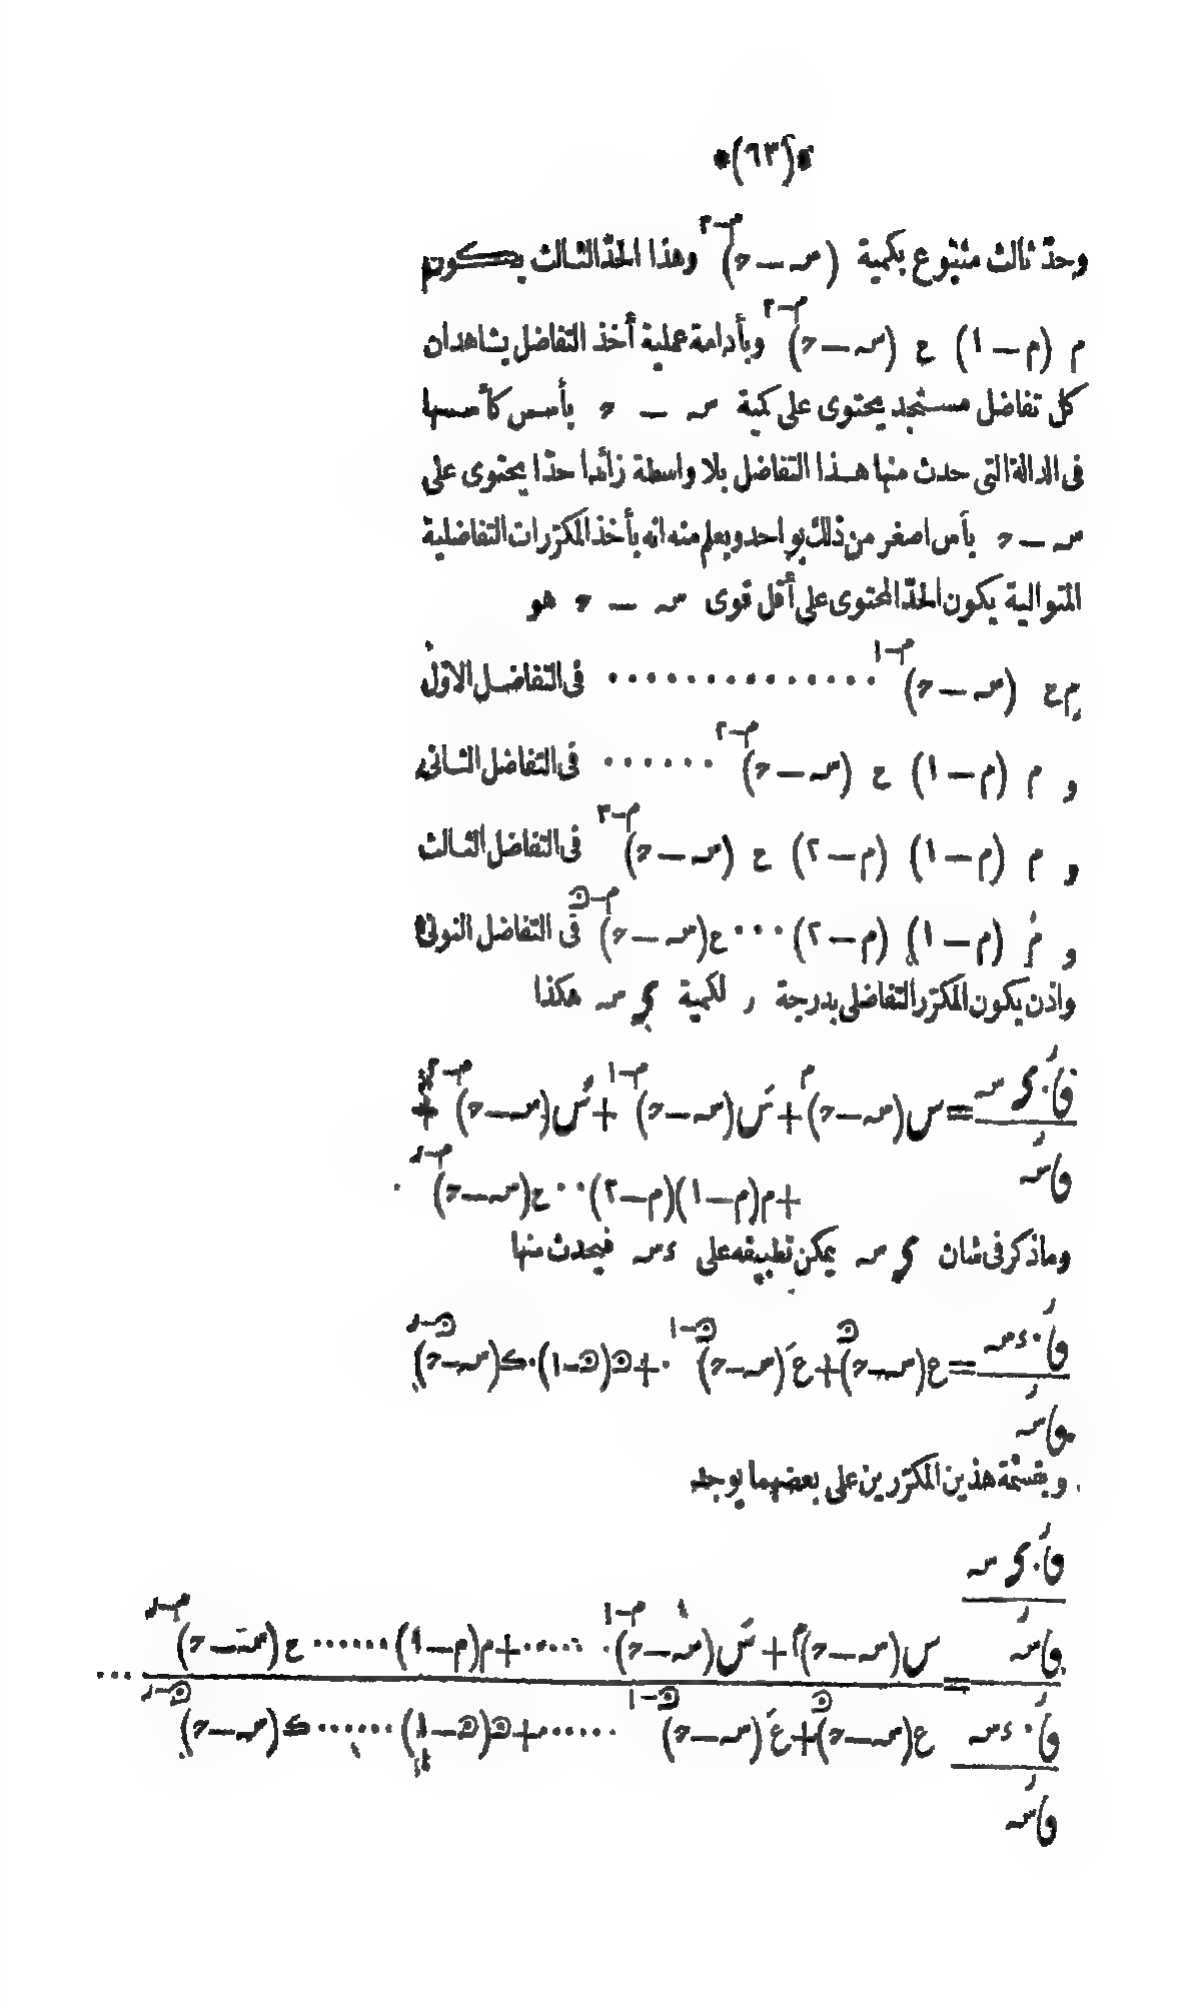 *(٦٣)*
وحدّ ثالث متبوع بكمية (سـ – حـ)^{م–٢} وهذا الحدّ الثالث يكون
م (م – ١) ع (سـ – حـ)^{م–٢} وبأدامة عملية أخذ التفاضل يشاهد ان
كل تفاضل مستجد يحتوى على كمية سـ – حـ بأسس كأسسها
فى الدالة التى حدث منها هذا التفاضل بلا واسطة زائدا حدّا يحتوى على
سـ – حـ بأس اصغر من ذلك بواحد ويعلم منه انه بأخذ المكررات التفاضلية
المتوالية يكون الحدّ المحتوى على أقل قوى سـ – حـ هو
م ع (سـ – حـ)^{م–١} ·············· فى التفاضل الاوّل
و م (م – ١) ع (سـ – حـ)^{م–٢} ······ فى التفاضل الثانى
و م (م – ١) (م – ٢) ع (سـ – حـ)^{م–٣} فى التفاضل الثالث
و م (م – ١) (م – ٢) ··· ع (سـ – حـ)^{م–ن} فى التفاضل النونى
واذن يكون المكرّر التفاضلى بدرجة ر لكمية كـ سـ هكذا
ق^ر·كـ سـ / ق سـ^ر = س(سـ–حـ)^م + سَ(سـ–حـ)^{م–١} + سً(سـ–حـ)^{م–٢} +
+م(م–١)(م–٢)··ع(سـ–حـ)^{م–ر}
وما ذكر فى شان كـ سـ يمكن تطبيقه على ء سـ فيحدث منها
ق^ر·ء سـ / ق سـ^ر = ع(سـ–حـ)^ن + عَ(سـ–حـ)^{ن–١} · + ن(ن–١)·ك(سـ–حـ)^{ن–ر}
وبقسمة هذين المكرّرين على بعضهما يوجد
ق^ر·كـ سـ / ق سـ^ر
س(سـ–حـ)^م + سَ(سـ–حـ)^{م–١} ······ +م(م–١)······ع(سـ–حـ)^{م–ر}
= ···
ق^ر·ء سـ / ق سـ^ر
ع(سـ–حـ)^ن + عَ(سـ–حـ)^{ن–١} ······ +ن(ن–١)······ك(سـ–حـ)^{ن–ر}